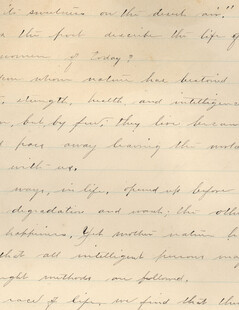 its sweetness on the desert air."
s the poet describe the life of
women of today?
whom nature has bestowed
strength, health and intelligence
but, by few; they live because
pass away leaving the world
with us.
ways, in life, opened up before
degradation and want; the other
happiness. Yet mother nature
that all intelligent persons may
ght methods are followed.
race of life, we find that the